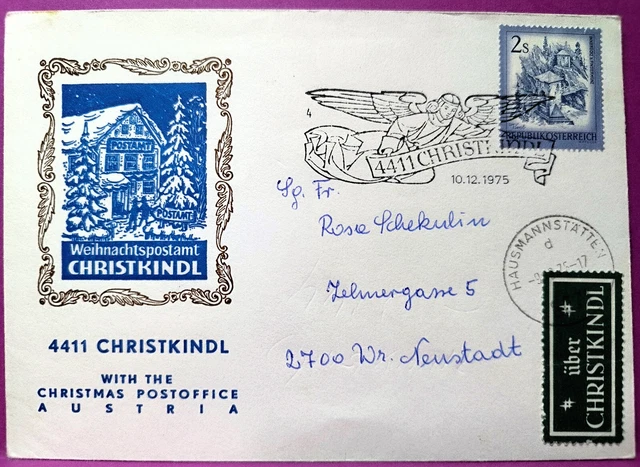 POSTAMT
POSTAMT
Weihnachtspostamt
CHRISTKINDL
4411 CHRISTKINDL
WITH THE
CHRISTMAS POSTOFFICE
AUSTRIA
2 S
REPUBLIK ÖSTERREICH
4
4411 CHRISTKINDL
10.12.1975
Sg. Fr.
Rosa Schekulin
Zehnergasse 5
2700 Wr. Neustadt
HAUSMANNSTÄTTEN
d
über
CHRISTKINDL